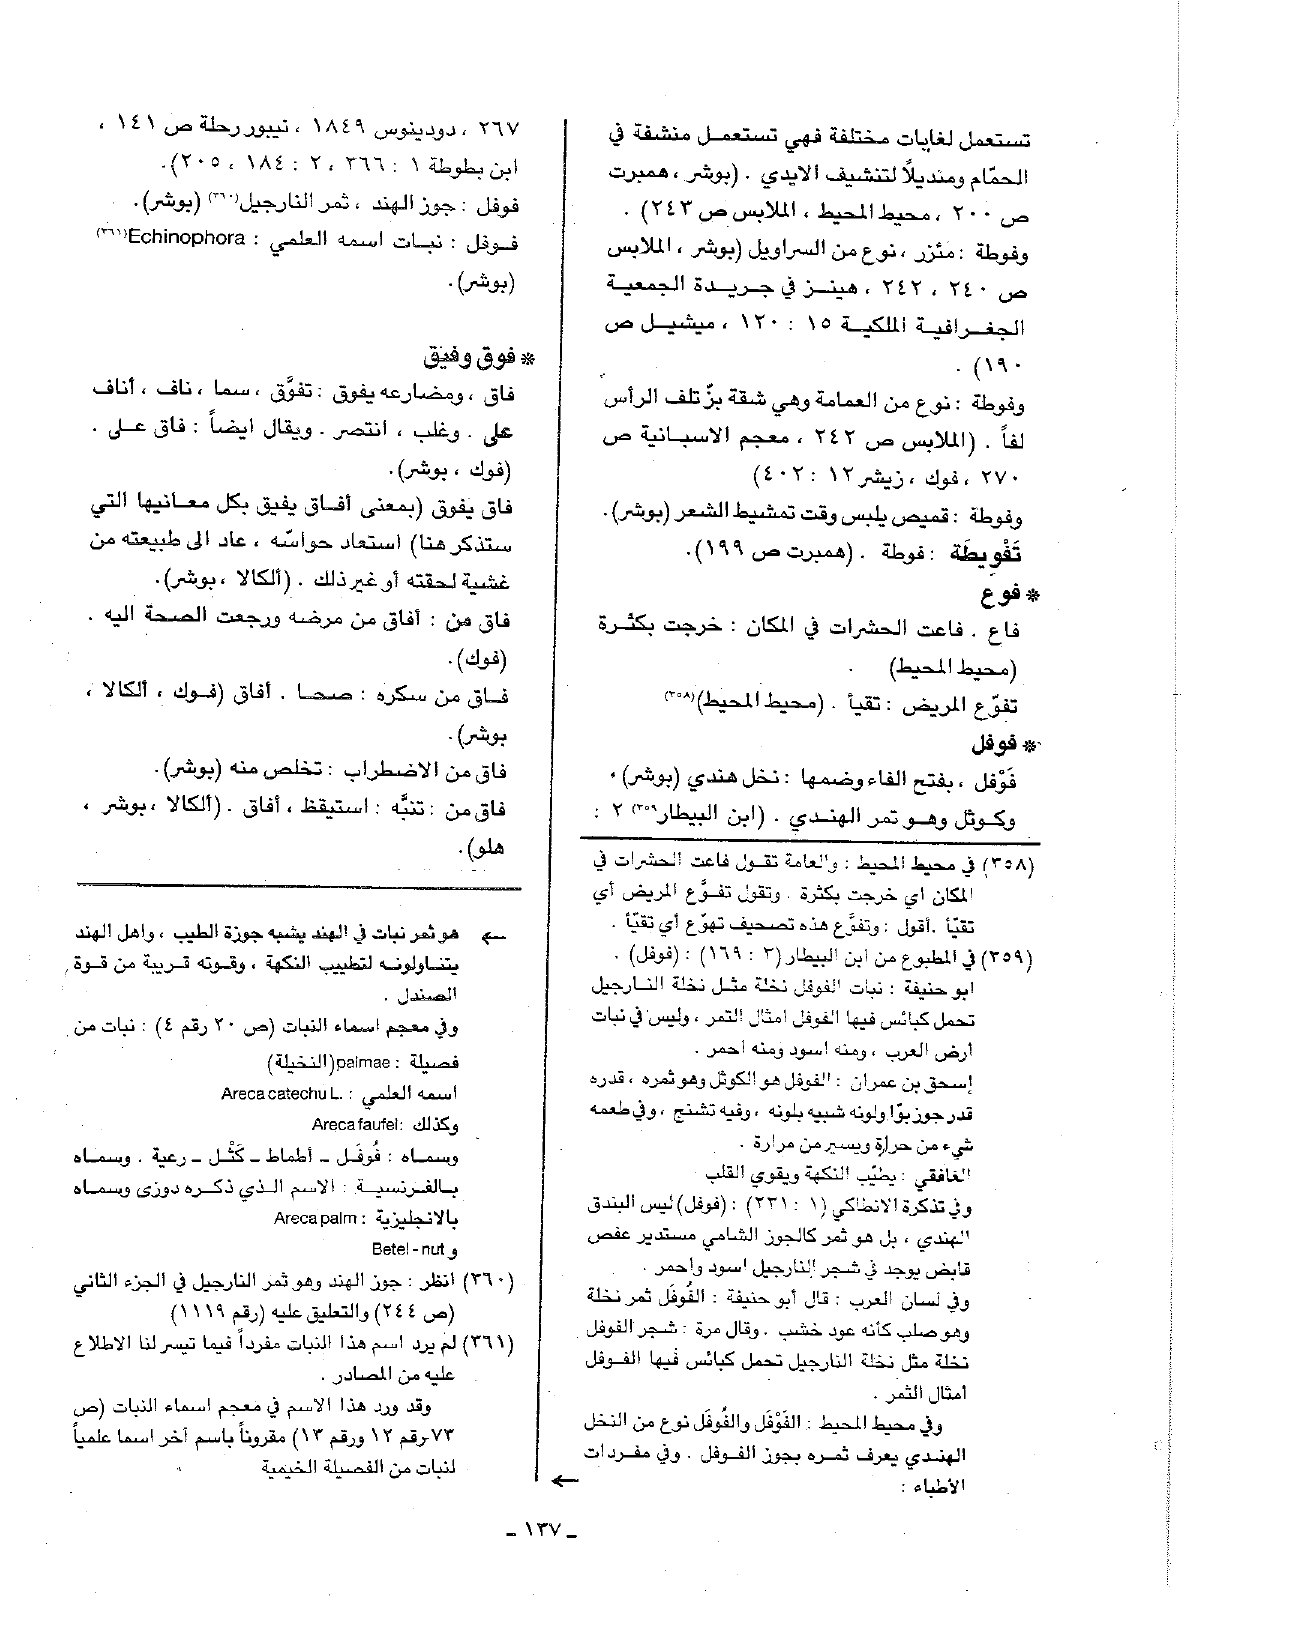 تستعمل لغايات مختلفة فهي تستعمل منشفة في
الحمّام ومنديلاً لتنشيف الايدي . (بوشر ، همبرت
ص ٢٠٠ ، محيط المحيط ، الملابس ص ٢٤٣) .
وفوطة : مئزر ، نوع من السراويل (بوشر ، الملابس
ص ٢٤٠ ، ٢٤٢ ، هينز في جريدة الجمعية
الجغرافية الملكية ١٥ : ١٢٠ ، ميشيل ص
١٩٠) .
وفوطة : نوع من العمامة وهي شقة بزّ تلف الرأس
لفاً . (الملابس ص ٢٤٢ ، معجم الاسبانية ص
٢٧٠ ، فوك ، زيشر ١٢ : ٤٠٢)
وفوطة : قميص يلبس وقت تمشيط الشعر (بوشر).
تَفْوِيطَة : فوطة . (همبرت ص ١٩٩).
* فوع
فاع . فاعت الحشرات في المكان : خرجت بكثرة
(محيط المحيط) .
تفوّع المريض : تقيأ . (محيط المحيط)(٣٥٨)
* فوفل
فَوْفل ، بفتح الفاء وضمها : نخل هندي (بوشر) ،
وكوثل وهو تمر الهندي . (ابن البيطار(٣٥٩) ٢ :
(٣٥٨) في محيط المحيط : والعامة تقول فاعت الحشرات في
المكان اي خرجت بكثرة . وتقول تفوَّع المريض أي
تقيّأ . أقول : وتفوَّع هذه تصحيف تهوّع أي تقيّأ .
(٣٥٩) في المطبوع من ابن البيطار (٣ : ١٦٩) : (فوفل) .
ابو حنيفة : نبات الفوفل نخلة مثل نخلة النارجيل
تحمل كبائس فيها الفوفل امثال التمر ، وليس في نبات
أرض العرب ، ومنه اسود ومنه احمر .
إسحق بن عمران : الفوفل هو الكوثل وهو ثمره ، قدره
قدر جوز بوّا ولونه شبيه بلونه ، وفيه تشنج ، وفي طعمه
شيء من حرارة ويسير من مرارة .
الغافقي : يطيّب النكهة ويقوي القلب
وفي تذكرة الانطاكي (١ : ٢٣١) : (فوفل) ليس البندق
الهندي ، بل هو ثمر كالجوز الشامي مستدير عفص
قابض يوجد في شجر النارجيل اسود واحمر .
وفي لسان العرب : قال أبو حنيفة : الفُوفَل ثمر نخلة
وهو صلب كأنه عود خشب . وقال مرة : شجر الفوفل
نخلة مثل نخلة النارجيل تحمل كبائس فيها الفوفل
أمثال التمر .
وفي محيط المحيط : الفَوْفَل والفُوفَل نوع من النخل
الهندي يعرف ثمره بجوز الفوفل . وفي مفردات
الأطباء :
←
٢٦٧ ، دودينوس ١٨٤٩ ، تيبور رحلة ص ١٤١ ،
ابن بطوطة ١ : ٣٦٦ ، ٢ : ١٨٤ ، ٢٠٥).
فوفل : جوز الهند ، ثمر النارجيل(٣٦٠) (بوشر).
فوفل : نبات اسمه العلمي : Echinophora(٣٦١)
(بوشر).
* فوق وفيق
فاق ، ومضارعه يفوق : تفوَّق ، سما ، ناف ، أناف
على . وغلب ، انتصر . ويقال ايضاً : فاق على .
(فوك ، بوشر).
فاق يفوق (بمعنى أفاق يفيق بكل معانيها التي
ستذكر هنا) استعاد حواسّه ، عاد الى طبيعته من
غشية لحقته أو غير ذلك . (ألكالا ، بوشر).
فاق من : أفاق من مرضه ورجعت الصحة اليه .
(فوك).
فاق من سكره : صحا . أفاق (فوك ، ألكالا ،
بوشر).
فاق من الاضطراب : تخلص منه (بوشر).
فاق من : تنبَّه : استيقظ ، أفاق . (ألكالا ، بوشر ،
هلو).
← هو ثمر نبات في الهند يشبه جوزة الطيب ، واهل الهند
يتناولونه لتطييب النكهة ، وقوته قريبة من قوة
الصندل .
وفي معجم اسماء النبات (ص ٢٠ رقم ٤) : نبات من
فصيلة : palmae (النخيلة)
اسمه العلمي : Areca catechu L.
وكذلك : Areca faufel
وسماه : فُوفَل ـ أطماط ـ كَثْل ـ رعية . وسماه
بالفرنسية : الاسم الذي ذكره دوزي وسماه
بالانجليزية : Areca palm
و Betel - nut
(٣٦٠) انظر : جوز الهند وهو ثمر النارجيل في الجزء الثاني
(ص ٢٤٤) والتعليق عليه (رقم ١١١٩)
(٣٦١) لم يرد اسم هذا النبات مفرداً فيما تيسر لنا الاطلاع
عليه من المصادر .
وقد ورد هذا الاسم في معجم اسماء النبات (ص
٧٣ رقم ١٢ ورقم ١٣) مقروناً باسم آخر اسما علمياً
لنبات من الفصيلة الخيمية
ـ ١٣٧ ـ